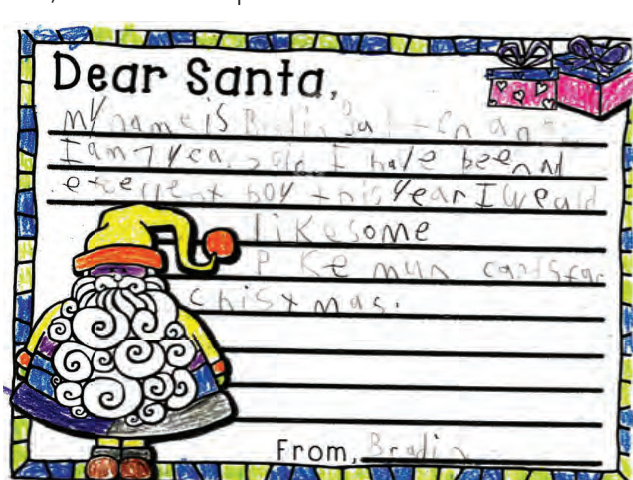 Dear Santa,
my name is
I am 7 year old. I have been
boy this year I would
like some
Pokemun cards for
christmas.
From, Brodin